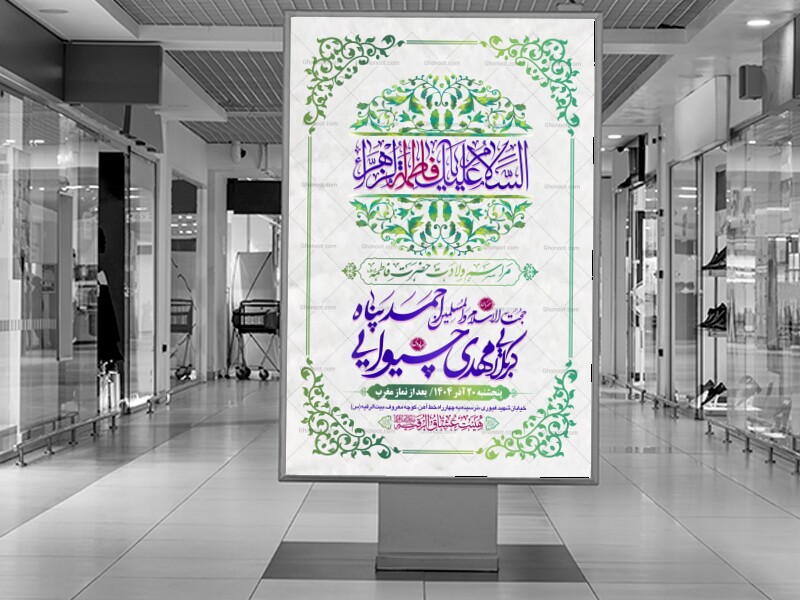 السلام علیک یا فاطمة الزهراء
مراسم ولادت حضرت فاطمه
حجت الاسلام والمسلمین احمد پناه
کربلایی مهدی چیوایی
پنجشنبه ۲۰ آذر ۱۴۰۴/ بعد از نماز مغرب
خیابان شهید غیوری، نرسیده به چهارراه خط آهن، کوچه معروف، بیت الرقیه(س)
هیئت عشاق الرقیه